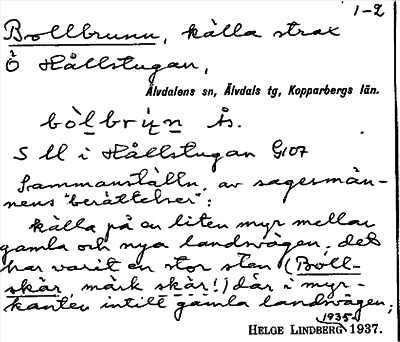 1-2
Bollbrunn, källa strax
Ö Hållstugan,
Älvdalens sn, Älvdals tg, Kopparbergs län.
bòlbrùn ås.
S ll i Hållstugan G107
Sammanställn. av sagesmän-
nens "berättelser":
källa på en liten myr mellan
gamla och nya landsvägen, det
har varit en stor sten (Boll-
skär, märk skär!) där i myr-
kanten intill gamla landsvägen;
1935-
HELGE LINDBERG 1937.